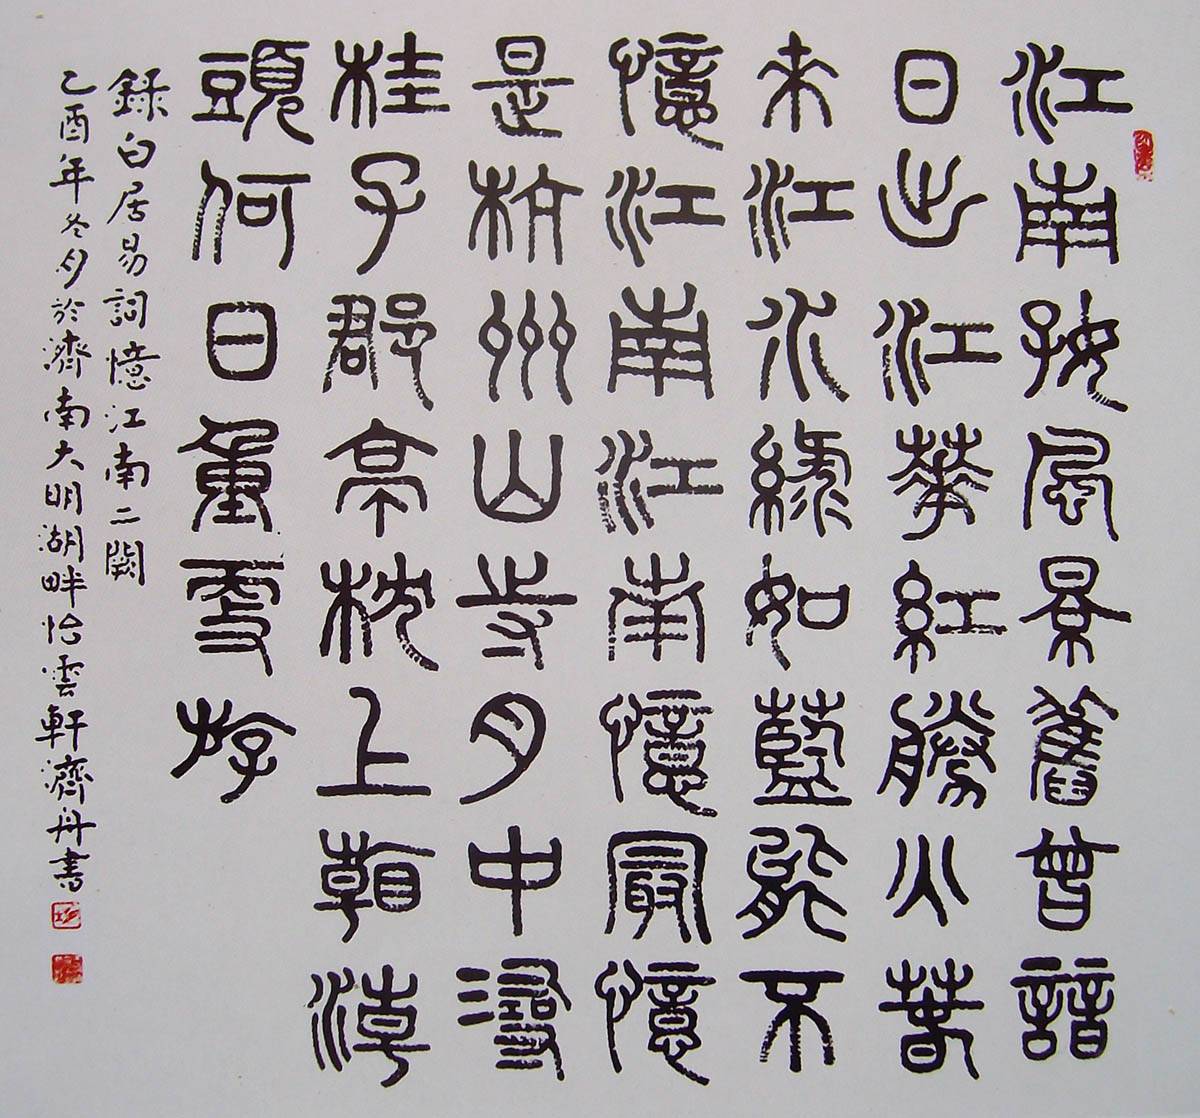 江南好風景舊曾諳
日出江華紅勝火春
來江水綠如藍能不
憶江南江南憶最憶
是杭州山寺月中尋
桂子郡亭枕上看潮
頭何日重游
錄白居易詞憶江南二闋
乙酉年冬月於濟南大明湖畔怡雲軒濟丹書